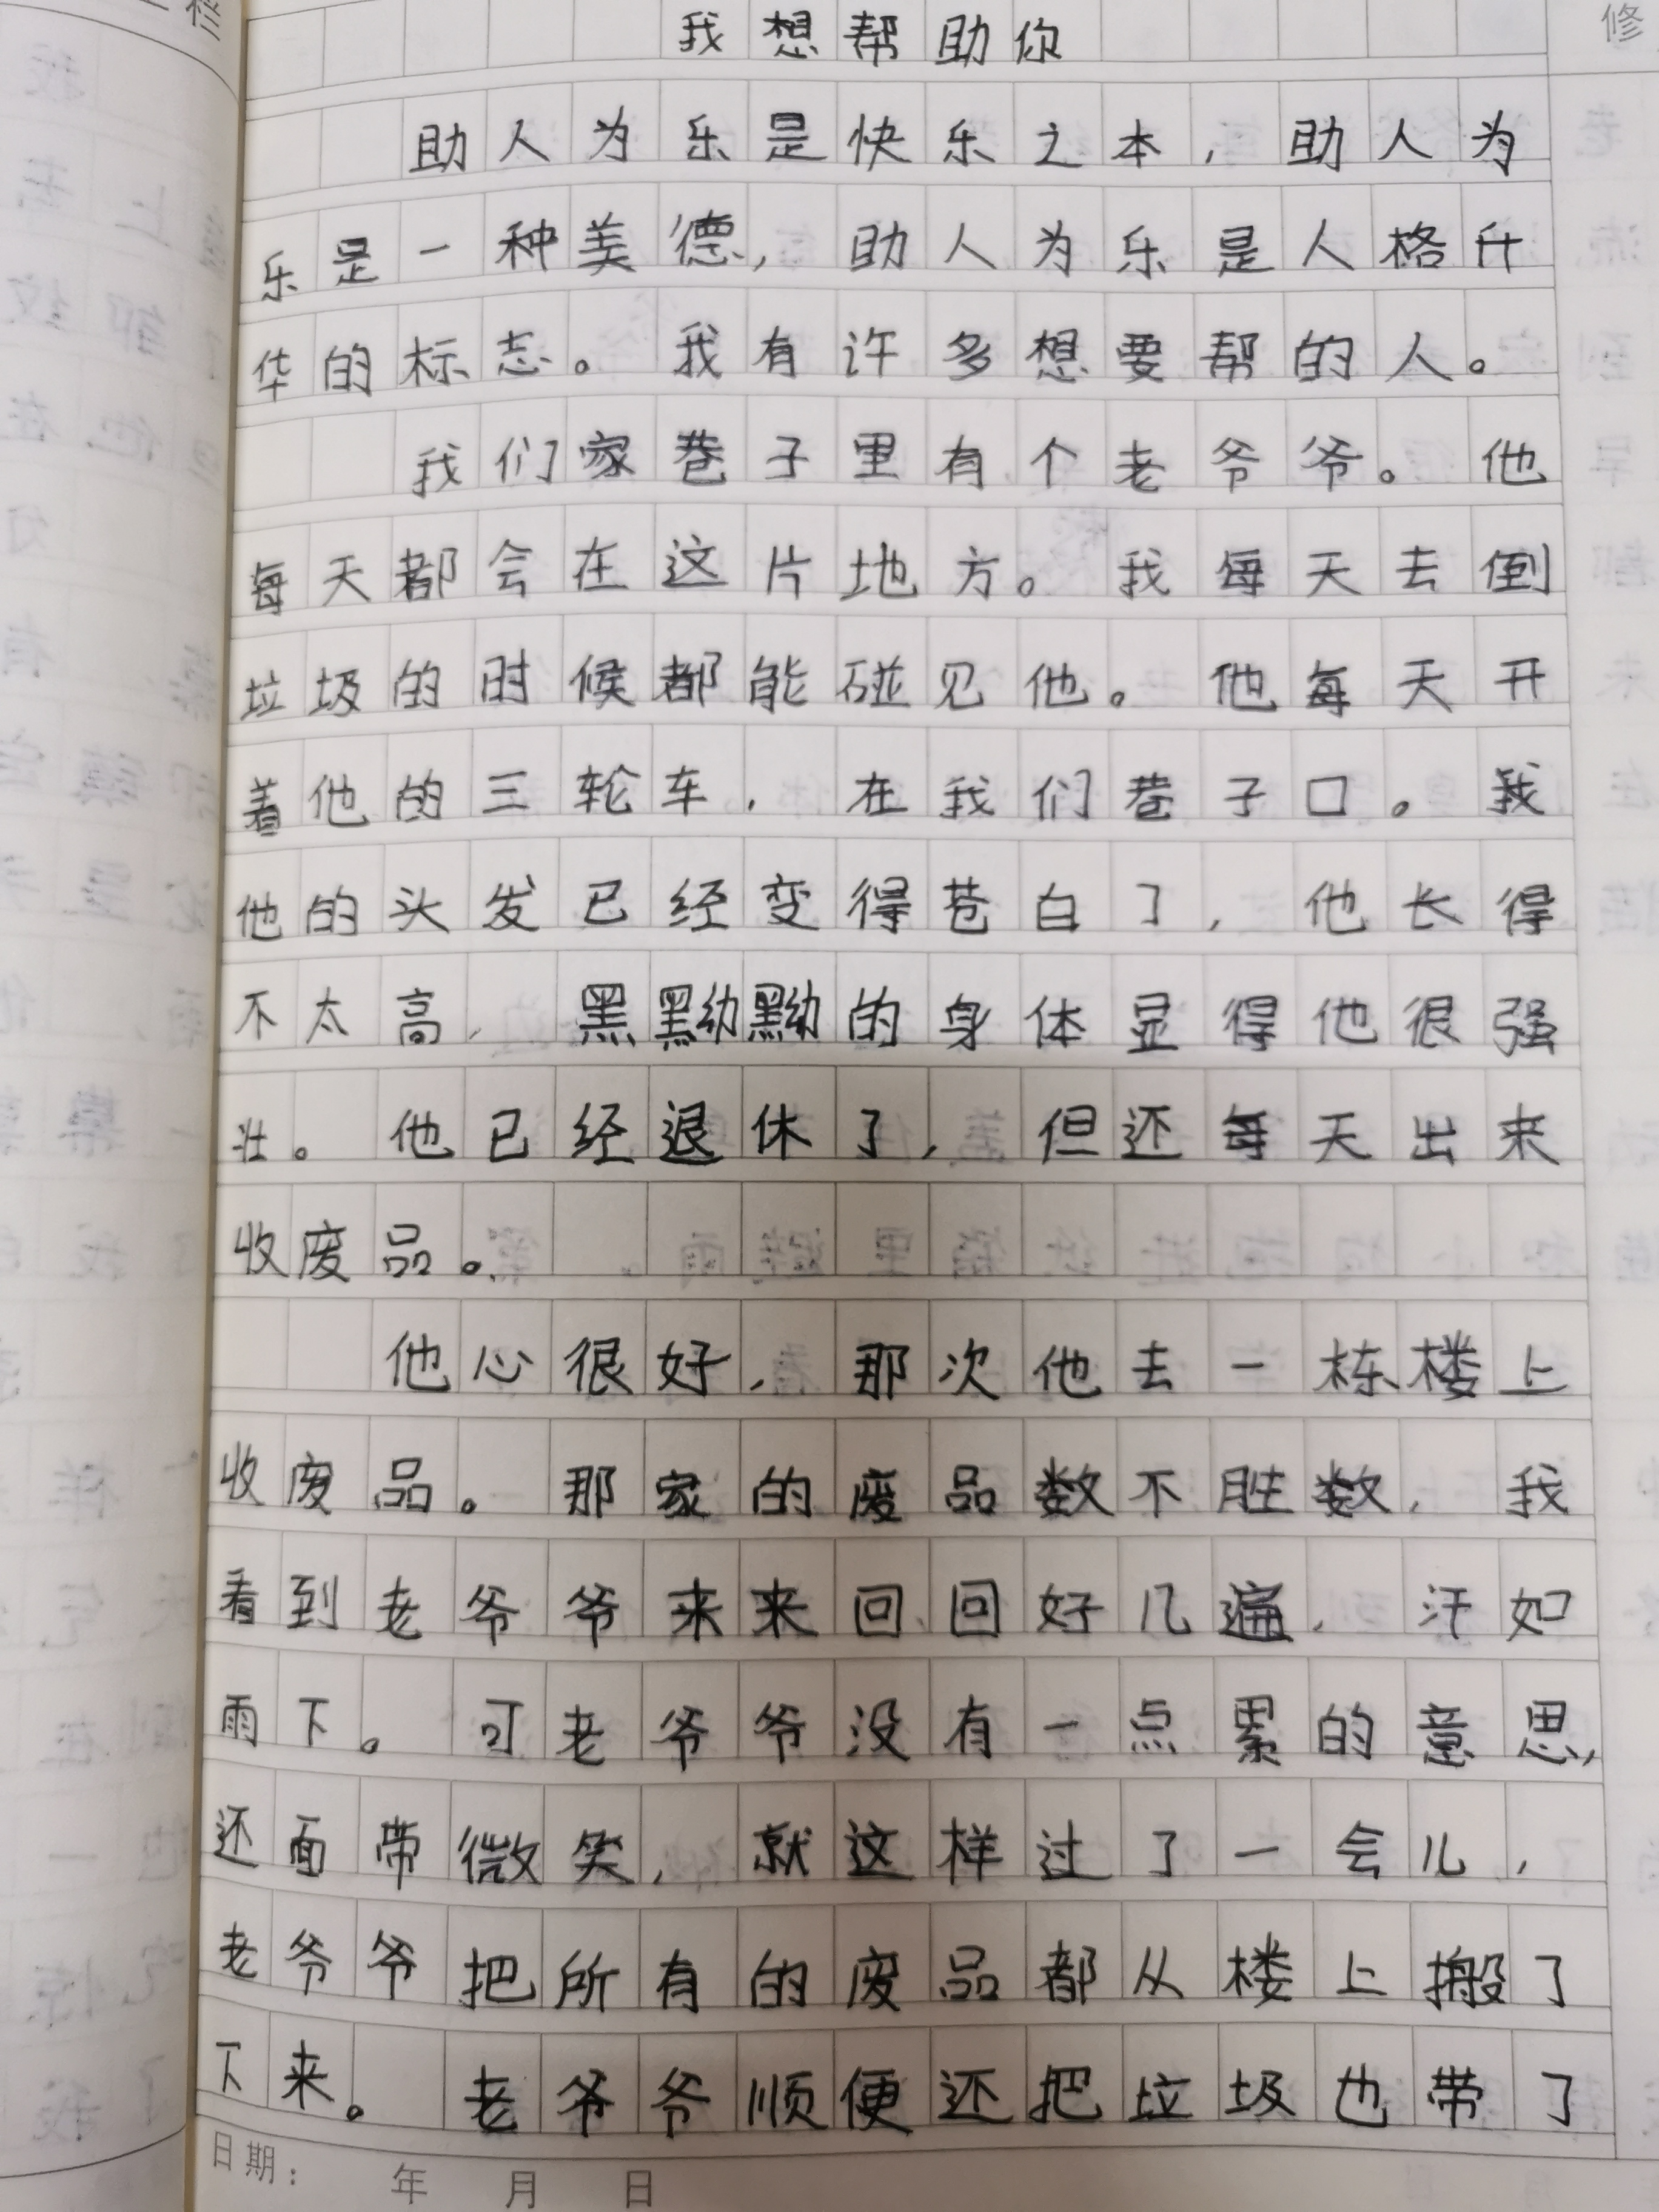 我想帮助你
助人为乐是快乐之本，助人为
乐是一种美德，助人为乐是人格升
华的标志。我有许多想要帮的人。
我们家巷子里有个老爷爷。他
每天都会在这片地方。我每天去倒
垃圾的时候都能碰见他。他每天开
着他的三轮车，在我们巷子口。我
他的头发已经变得苍白了，他长得
不太高，黑黝黝的身体显得他很强
壮。他已经退休了，但还每天出来
收废品。
他心很好，那次他去一栋楼上
收废品。那家的废品数不胜数，我
看到老爷爷来来回回好几遍，汗如
雨下。可老爷爷没有一点累的意思，
还面带微笑，就这样过了一会儿，
老爷爷把所有的废品都从楼上搬了
下来。老爷爷顺便还把垃圾也带了
日期： 年 月 日
修